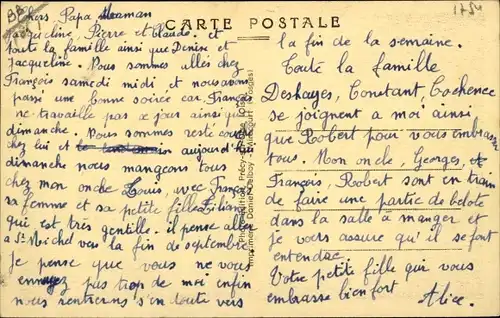 CARTE POSTALE
1754
BB
Chers Papa Maman
Jacqueline, Pierre et Claude. et
toute la famille ainsi que Denise et
Jacqueline. Nous sommes allés chez
François samedi midi et nous avons
passé une bonne soirée car François
ne travaille pas ce jour ainsi que
dimanche. Nous sommes resté couché
chez lui et aujourd'hui
dimanche nous mangeons tous
chez mon oncle Louis, avec François
sa femme et sa petite fille Liliane
qui est très gentille. il pense aller
a St Michel vers la fin de septembre
je pense que vous ne vous
ennuyez pas trop de moi enfin
nous rentrerons s'en doute vers
la fin de la semaine.
Toute la famille
Deshayes, Constant, Cochence
se joignent a moi ainsi
que Robert pour vous embrasser
tous. Mon oncle, Georges, et
François, Robert sont en train
de faire une partie de belote
dans la salle à manger et
je vous assure qu'il se font
entendre.
Votre petite fille qui vous
embrasse bien fort
Alice.